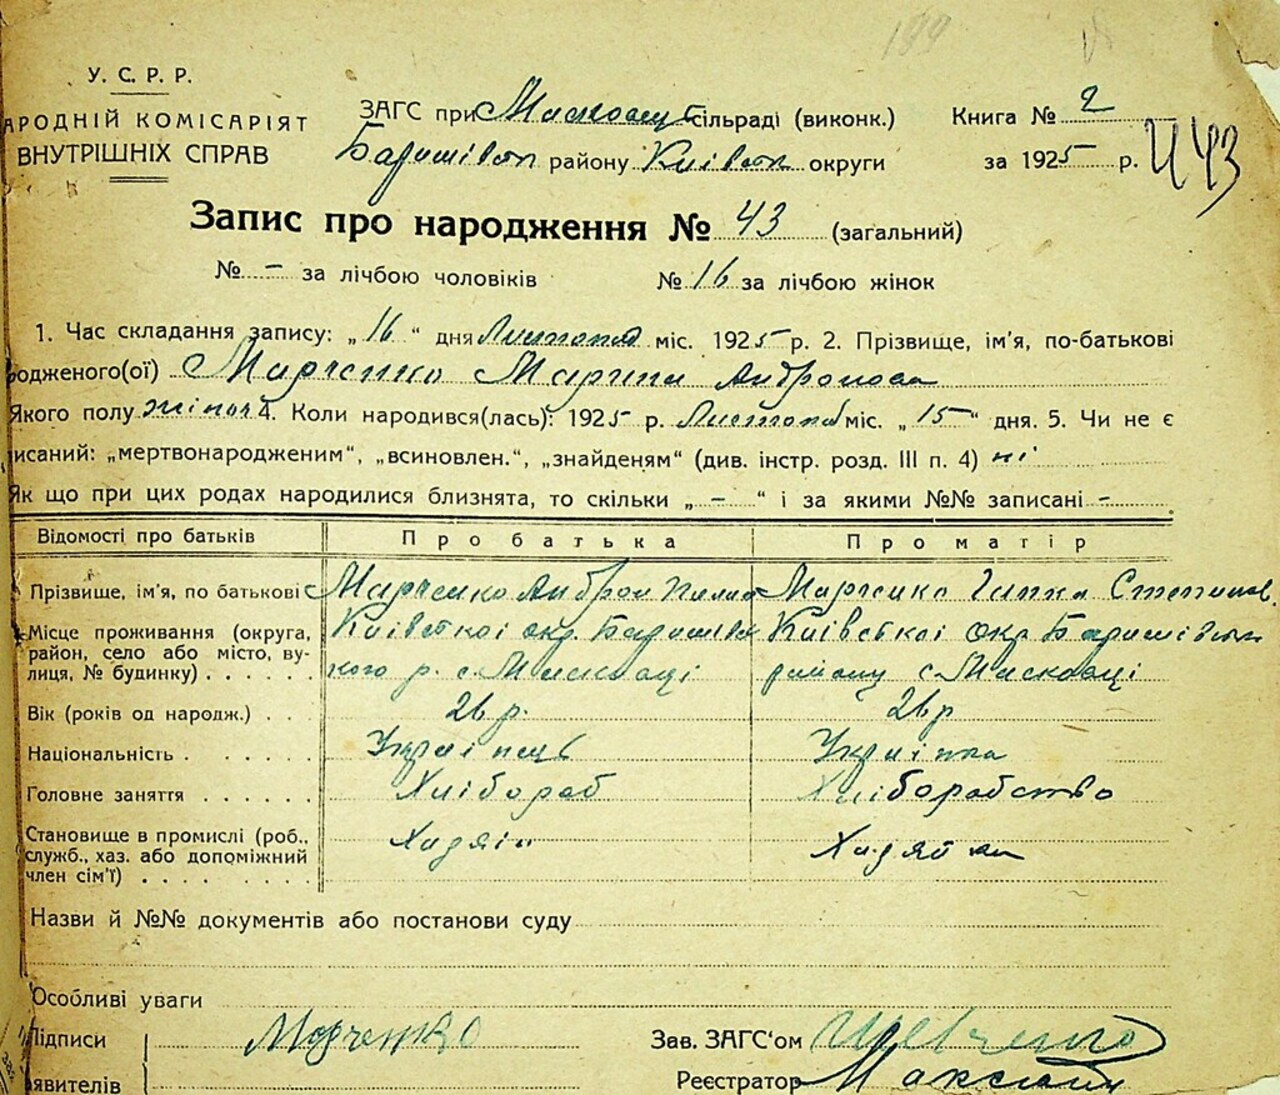 199
У. С. Р. Р.
АРОДНІЙ КОМІСАРІЯТ
ВНУТРІШНІХ СПРАВ
ЗАГС при сільраді (виконк.)
Книга № 2
Баришівськ району Київськ округи
за 1925 р.
Ч 43
Запис про народження № 43 (загальний)
№ - за лічбою чоловіків № 16 за лічбою жінок
1. Час складання запису: „16“ дня Листопад міс. 1925 р. 2. Прізвище, ім'я, по-батькові
одженого(ої) Марченко Марина Андронова
Якого полу жіноч 4. Коли народився(лась): 1925 р. Листопад міс. „15“ дня. 5. Чи не є
исаний: „мертвонародженим“, „всиновлен.“, „знайденям“ (див. інстр. розд. III п. 4) ні
Як що при цих родах народилися близнята, то скільки „-“ і за якими №№ записані -
Відомості про батьків Про батька Про матір
Прізвище, ім'я, по батькові Марченко Андрон Марченко Ганка Степанов.
Місце проживання (округа, район, село або місто, вулиця, № будинку) Київської окр. Баришівського р. с. Київської окр Баришівськ району с
Вік (років од народж.) 26 р. 26 р
Національність Українець Українка
Головне заняття Хлібороб Хліборобство
Становище в промислі (роб., служб., хаз. або допоміжний член сім'ї) Хазяїн Хазяйка
Назви й №№ документів або постанови суду
Особливі уваги
Підписи Марченко
Зав. ЗАГС'ом Шевченко
аявителів
Реєстратор